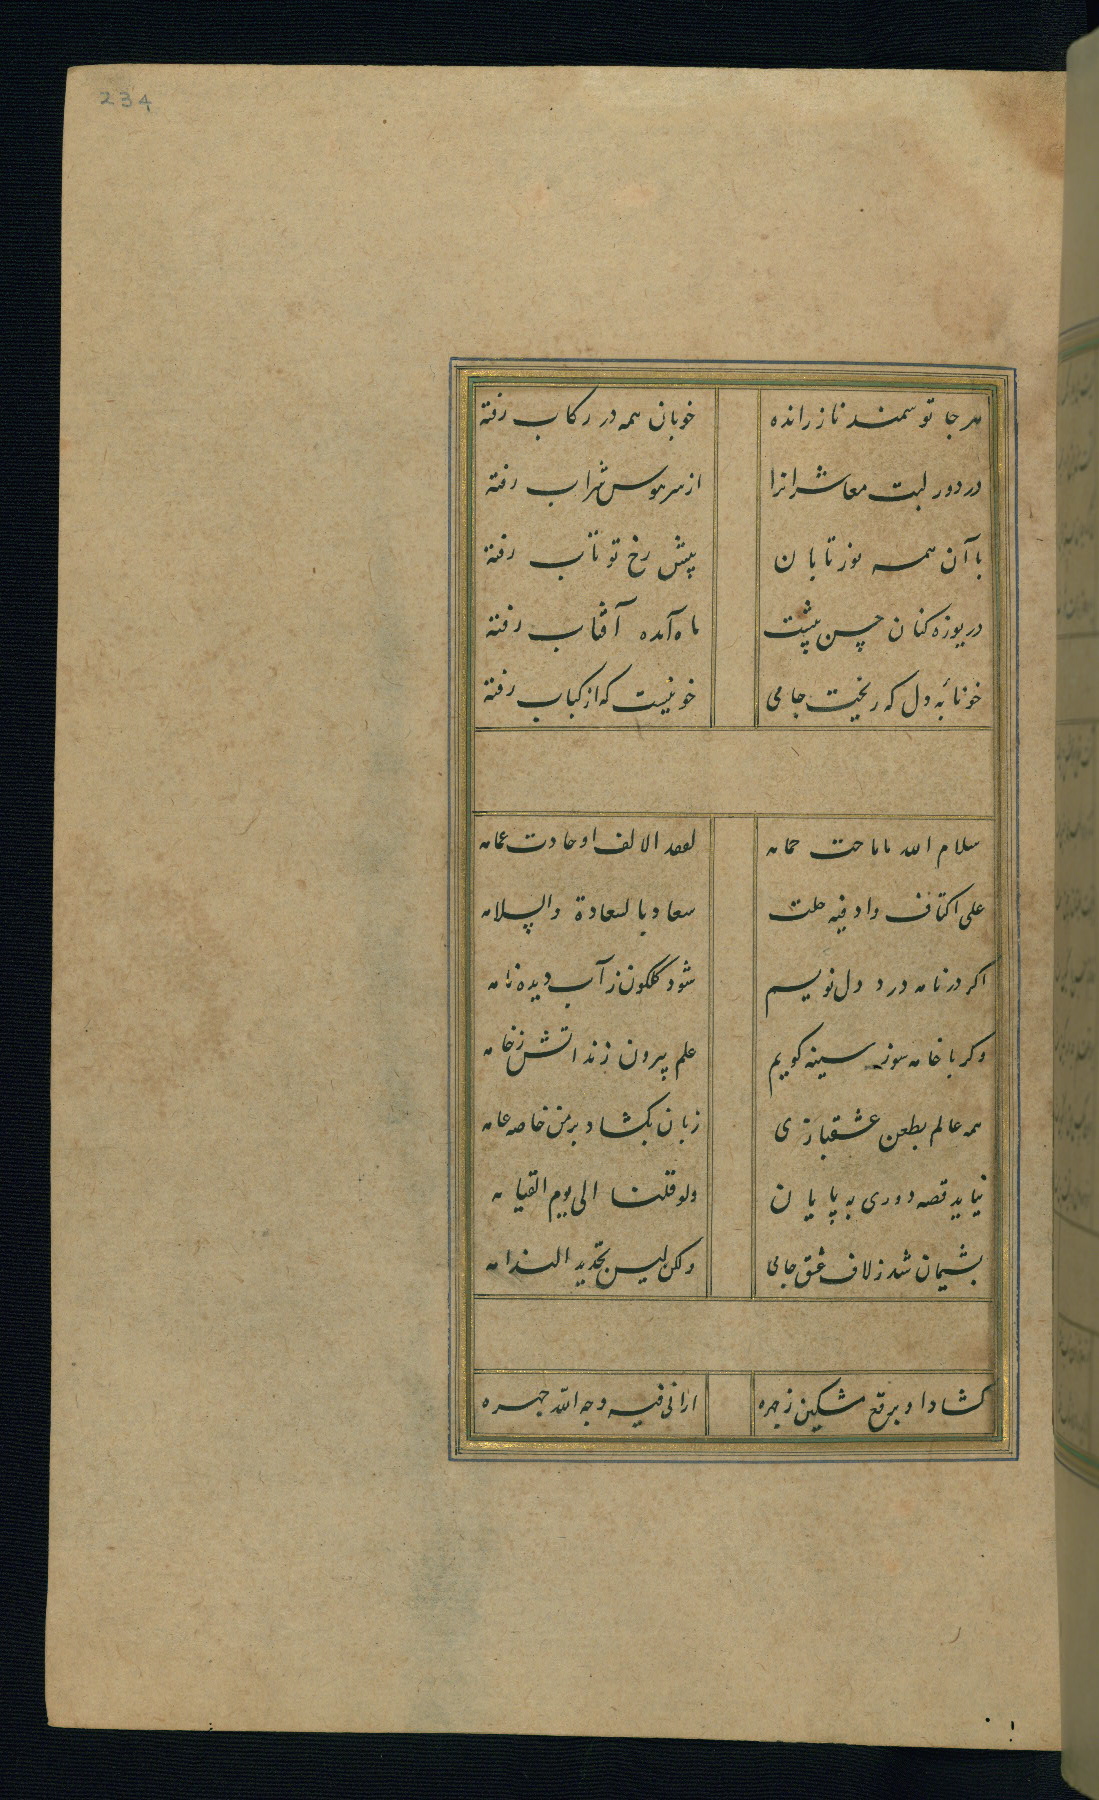 234
هر جا تو سمند ناز رانده خوبان همه در رکاب رفته
در دور لبت معاشرانرا از سر هوس شراب رفته
با آن همه نور تابان پیش رخ تو تاب رفته
دریوزه کنان حسن پیشت ماه آمده آفتاب رفته
خونابه دل که ریخت جامی خونیست که از کباب رفته
سلام الله ما ناحت حمامه لفقد الالف او جادت غمامه
علی اکناف واد فیه حلت سعاد بالسعادة والسلامه
اکر در نامه درد دل نویسم شود کلکون ز آب دیده نامه
وکر با خامه سوز سینه کویم علم بیرون زند آتش ز خامه
همه عالم بطعن عشقبازی زبان بکشاد بر من خاصه عامه
نیاید قصه دوری به پایان ولو قلنا الی یوم القیامه
پشیمان شد ز لاف عشق جامی ولکن لیس تجدید الندامه
کشاد او برقع مشکین ز چهره ارانی فیه وجه الله جهره